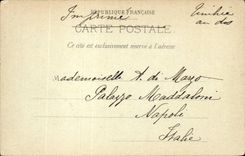 RÉPUBLIQUE FRANÇAISE
Imprimé Timbre
CARTE POSTALE au dos
Ce côté est exclusivement réservé à l'adresse
Mademoiselle A. de Mayo
Palazzo Maddaloni
Napoli
Italie